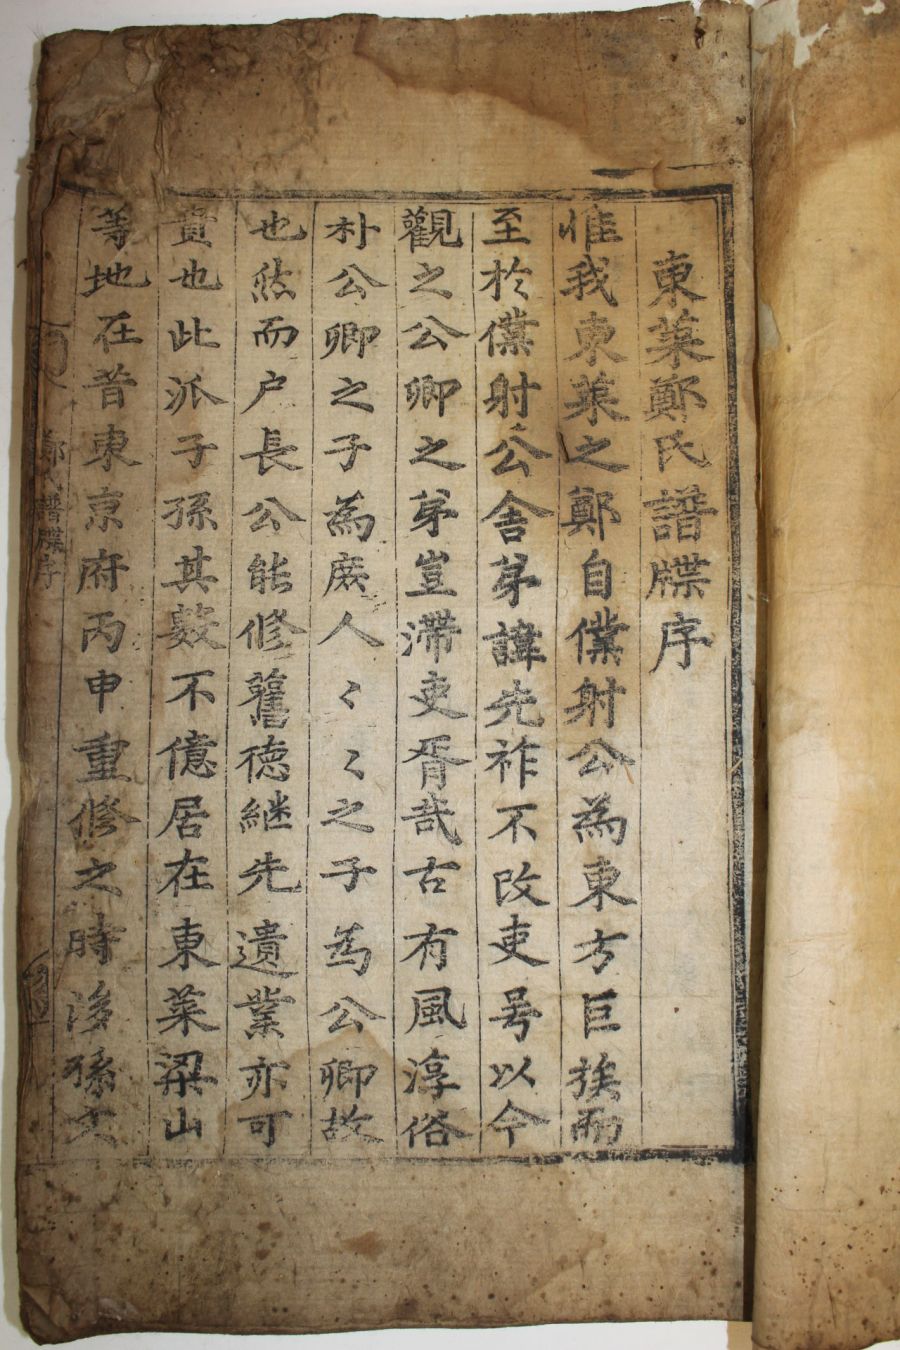 東萊鄭氏譜牒序
惟我東萊之鄭自僕射公為東方巨族而
至於僕射公舍弟諱先祚不改吏号以今
觀之公卿之弟豈滞吏胥哉古有風淳俗
朴公卿之子為庶人〻〻之子為公卿故
也然而户長公能修舊德継先遺業亦可
貴也此派子孫其数不億居在東萊梁山
等地在昔東京府丙申重修之時後孫
鄭氏譜牒序